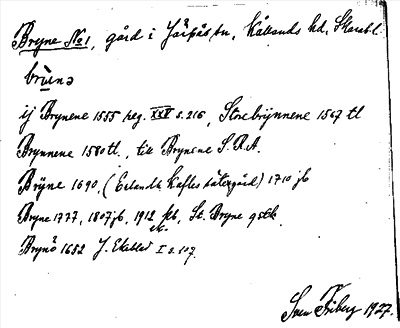 Bryne No 1, gård i Järpås sn, Kållands hd, Skarabl.
brùnə
ij Brynene 1555 reg. XXV s. 216, Storebrynnene 1567 tl
Brynnene 1580 tl., till Brynene S.R.A.
Brÿne 1690, ( sätergård) 1710 jb
Bryne 1777, 1807 jb, 1912 St. Bryne gstk.
Brynö 1652 J. Ekeblad I s. 107.
Sven Friberg 1927.